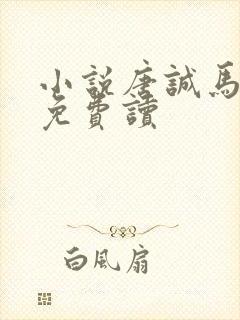 小說唐誠馬
免費讀
白風扇